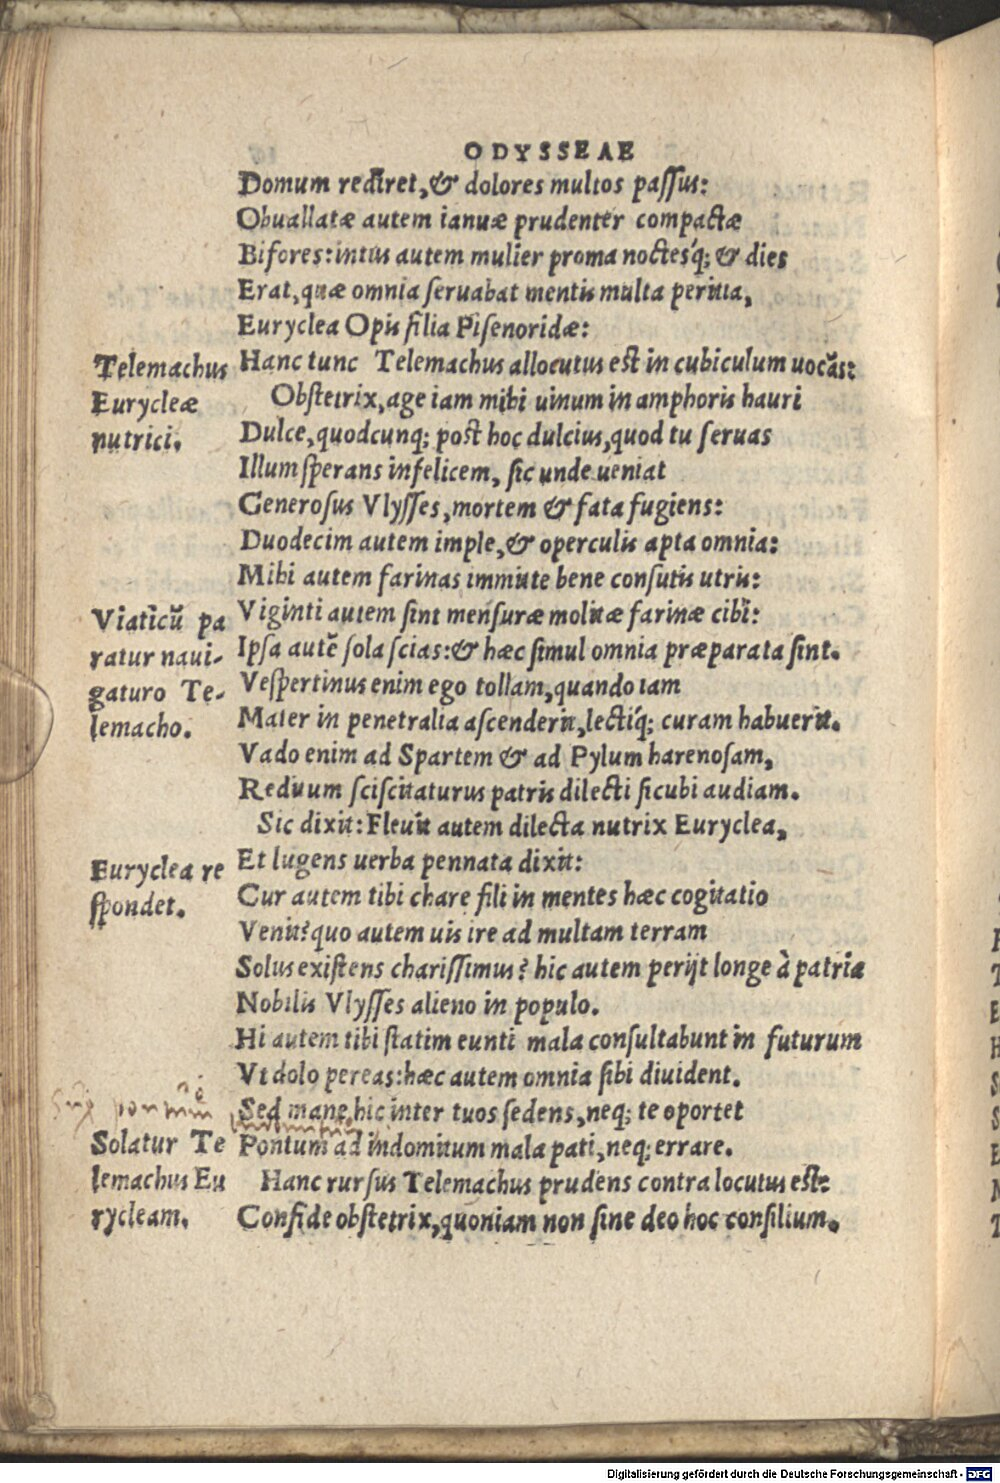 ODYSSEAE
Domum rediret, & dolores multos passus:
Obuallatæ autem ianuæ prudenter compactæ
Bifores: intus autem mulier proma noctesq; & dies
Erat, quæ omnia seruabat mentis multa peritia,
Euryclea Opis filia Pisenoridæ:
Telemachus Hanc tunc Telemachus allocutus est in cubiculum uocãs:
Eurycleæ Obstetrix, age iam mihi uinum in amphoris hauri
nutrici. Dulce, quodcunq; post hoc dulcius, quod tu seruas
Illum sperans infelicem, sic unde ueniat
Generosus Vlysses, mortem & fata fugiens:
Duodecim autem imple, & operculis apta omnia:
Mihi autem farinas immitte bene consutis utris:
Viaticũ pa Viginti autem sint mensuræ molitæ farinæ cibi:
ratur naui- Ipsa autẽ sola scias: & hæc simul omnia præparata sint.
gaturo Te- Vespertinus enim ego tollam, quando iam
lemacho. Mater in penetralia ascenderit, lectiq; curam habuerit.
Vado enim ad Spartem & ad Pylum harenosam,
Reditum sciscitaturus patris dilecti sicubi audiam.
Sic dixit: Fleuit autem dilecta nutrix Euryclea,
Euryclea re Et lugens uerba pennata dixit:
spondet. Cur autem tibi chare fili in mentes hæc cogitatio
Venit? quo autem uis ire ad multam terram
Solus existens charissimus? hic autem perijt longe à patria
Nobilis Vlysses alieno in populo.
Hi autem tibi statim eunti mala consultabunt in futurum
Vt dolo pereas: hæc autem omnia sibi diuident.
Sed mane hic inter tuos sedens, neq; te oportet
Solatur Te Pontum ad indomitum mala pati, neq; errare.
lemachus Eu Hanc rursus Telemachus prudens contra locutus est:
rycleam. Confide obstetrix, quoniam non sine deo hoc consilium.
Digitalisierung gefördert durch die Deutsche Forschungsgemeinschaft - DFG